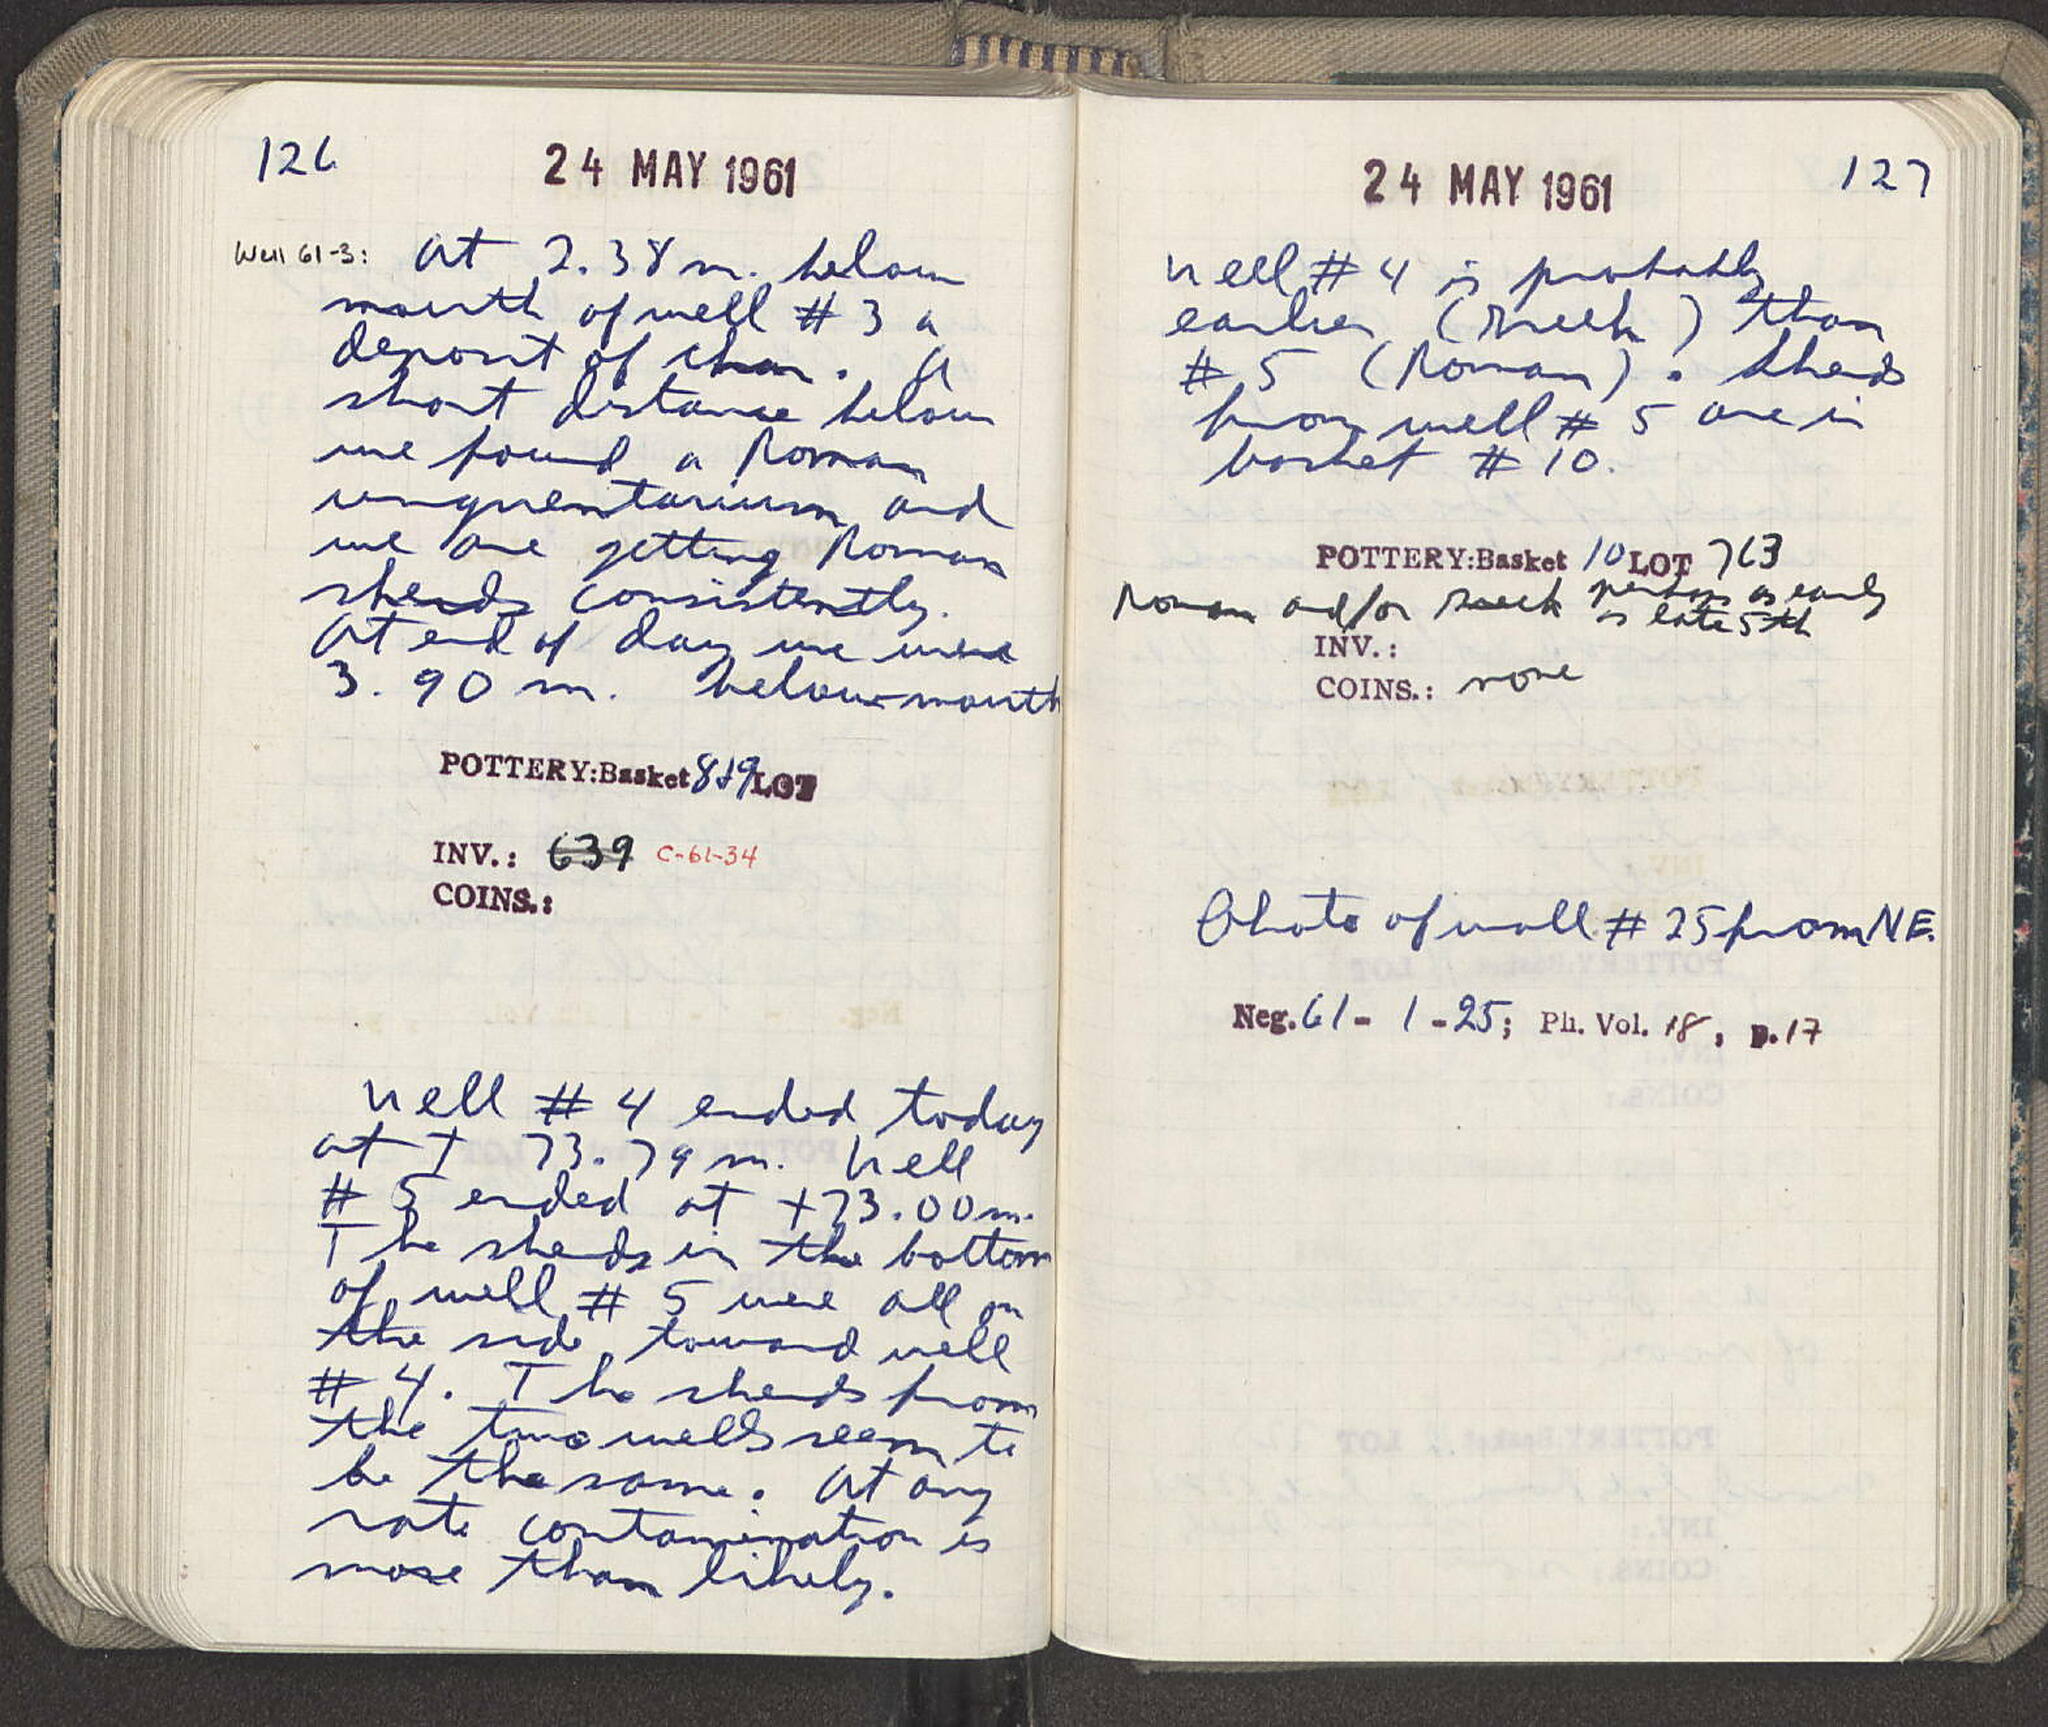 126
24 MAY 1961
Well 61-3: At 2.38 m. below
mouth of well # 3 a
deposit of char. A
short distance below
we found a Roman
unguentarium and
we are getting Roman
sherds consistently.
At end of day we were
3.90 m. below mouth
POTTERY:Basket 8+9 LOT
INV.: 639 C-61-34
COINS.:
Well # 4 ended today
at + 73.79 m. Well
# 5 ended at +73.00m.
The sherds in the bottom
of well # 5 were all on
the side toward well
# 4. The sherds from
the two wells seem to
be the same. At any
rate contamination is
more than likely.
24 MAY 1961
127
Well # 4 is probably
earlier (Greek) than
# 5 (Roman). Sherds
from well # 5 are in
basket # 10.
POTTERY:Basket 10 LOT 763
Roman and/or Greek perhaps as early
as late 5th
INV.:
COINS.: none
Photo of wall # 25 from NE.
Neg. 61 - 1 - 25; Ph. Vol. 18, p. 17